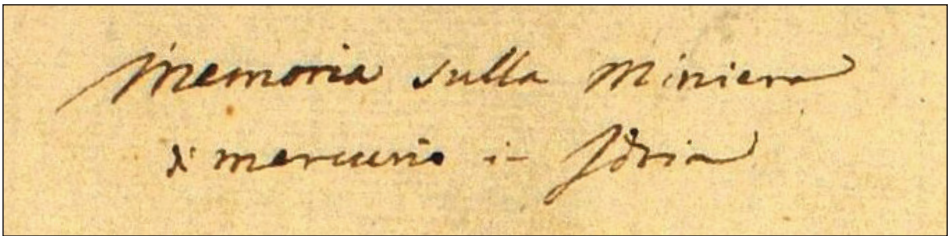 Memoria sulla Miniera
di mercurio in Idria